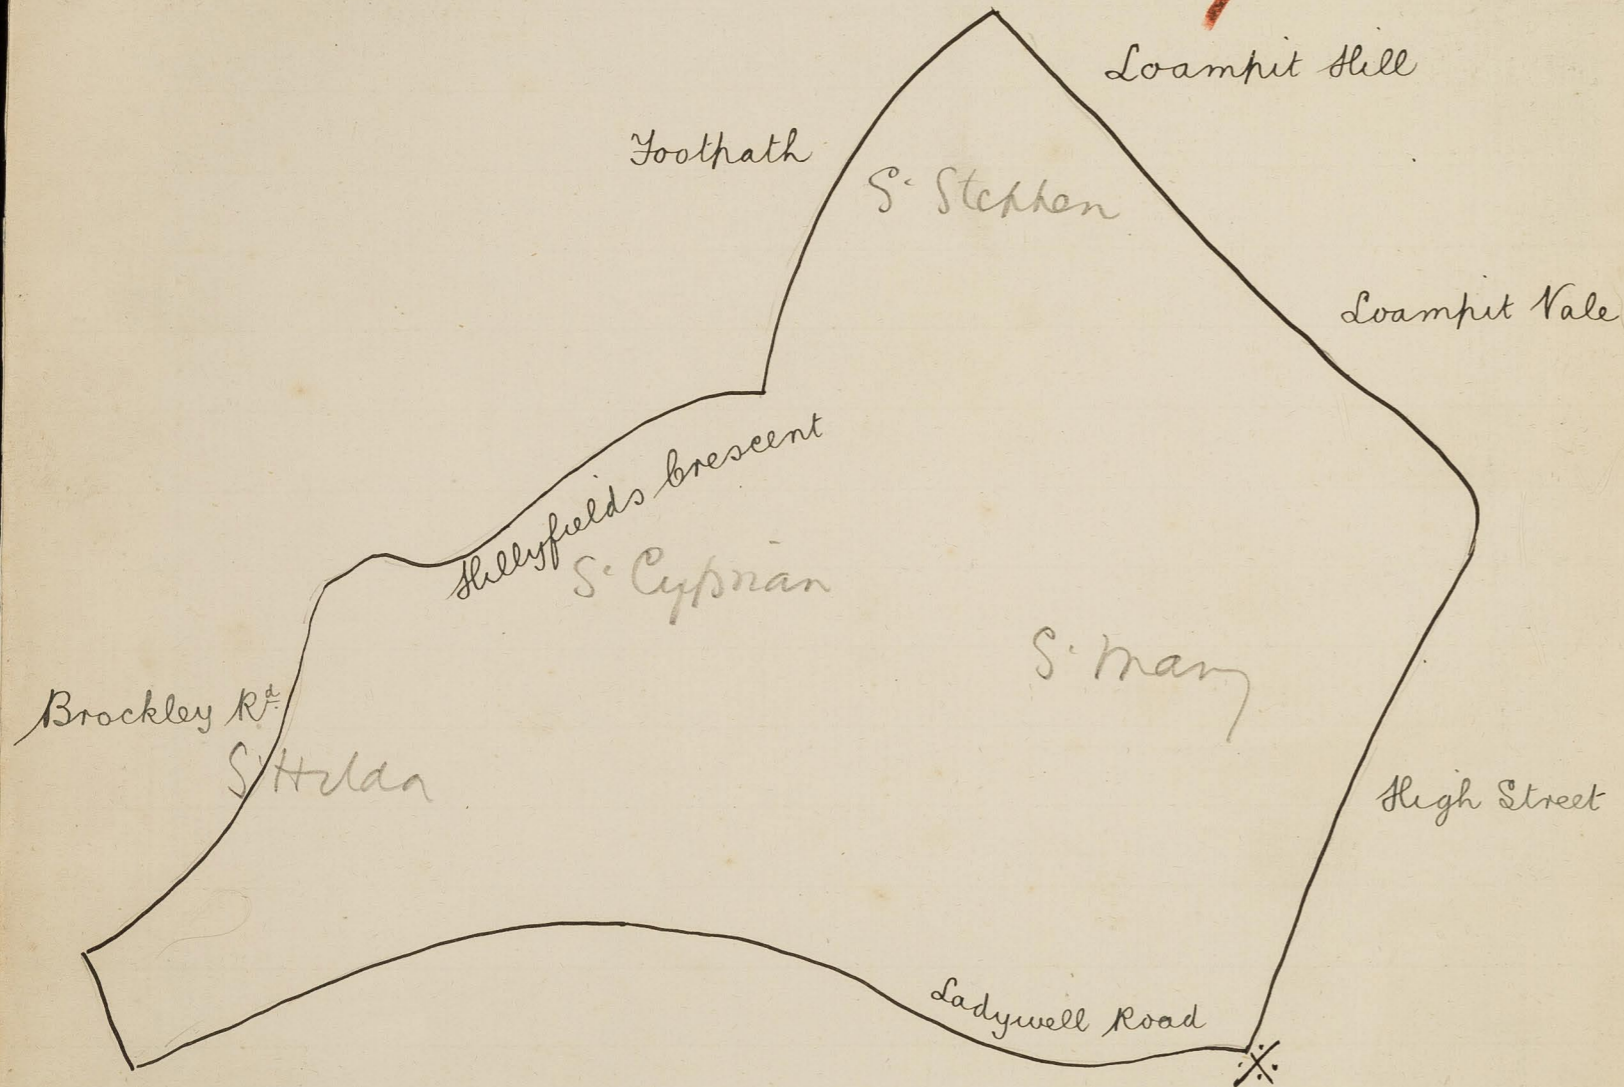 Loampit Hill
Footpath
S. Stephen
Loampit Vale
Hillyfields Crescent
S. Cyprian
S. Mary
Brockley Rd
S. Hilda
High Street
Ladywell Road